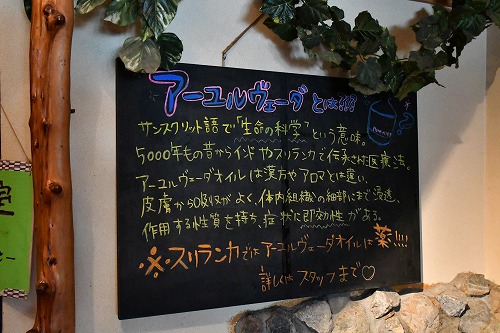 アーユルヴェーダとは!?
サンスクリット語で"生命の科学"という意味。
5000年もの昔からインドやスリランカで伝承された医療法。
アーユルヴェーダオイルは漢方やアロマとは違い、
皮膚から吸収がよく、体内組織の細部にまで浸透、
作用する性質を持ち、症状に即効性がある。
※スリランカではアーユルヴェーダオイルは薬!!!!
詳しくはスタッフまで♡